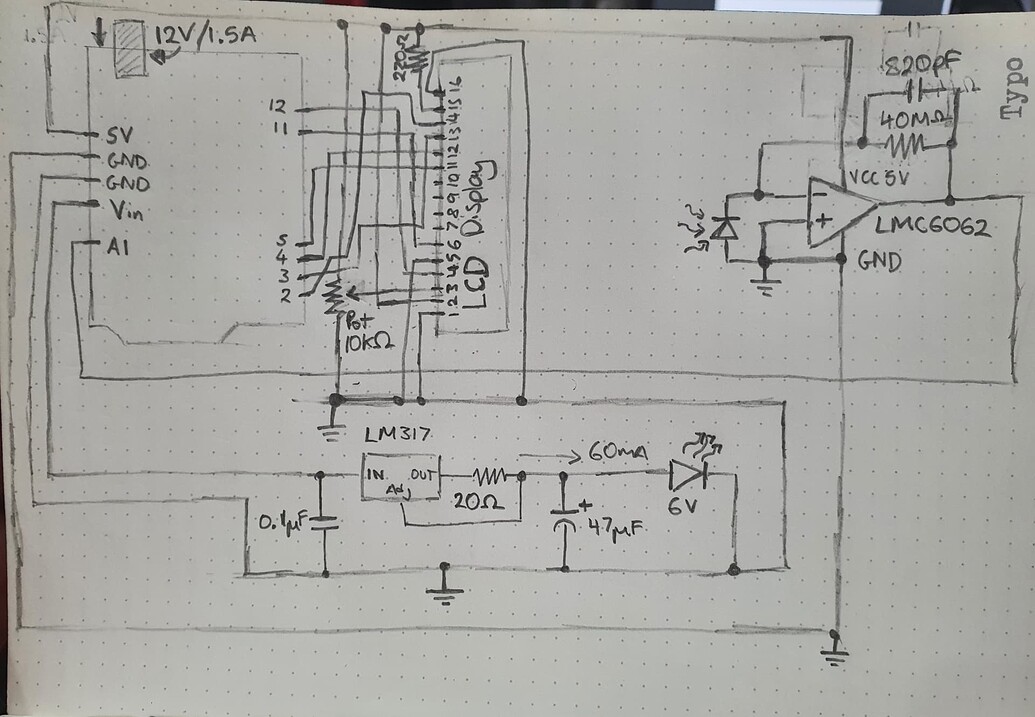 12V/1.5A
5V
GND
GND
Vin
A1
12
11
5
4
3
2
220Ω
16
15
14
13
12
11
10
9
8
7
6
5
4
3
2
1
LCD Display
Pot
10kΩ
820pF
40MΩ
VCC 5V
-
+
LMC6062
GND
Typo
LM317
IN
OUT
Adj
20Ω
60mA
6V
0.1μF
+
47μF